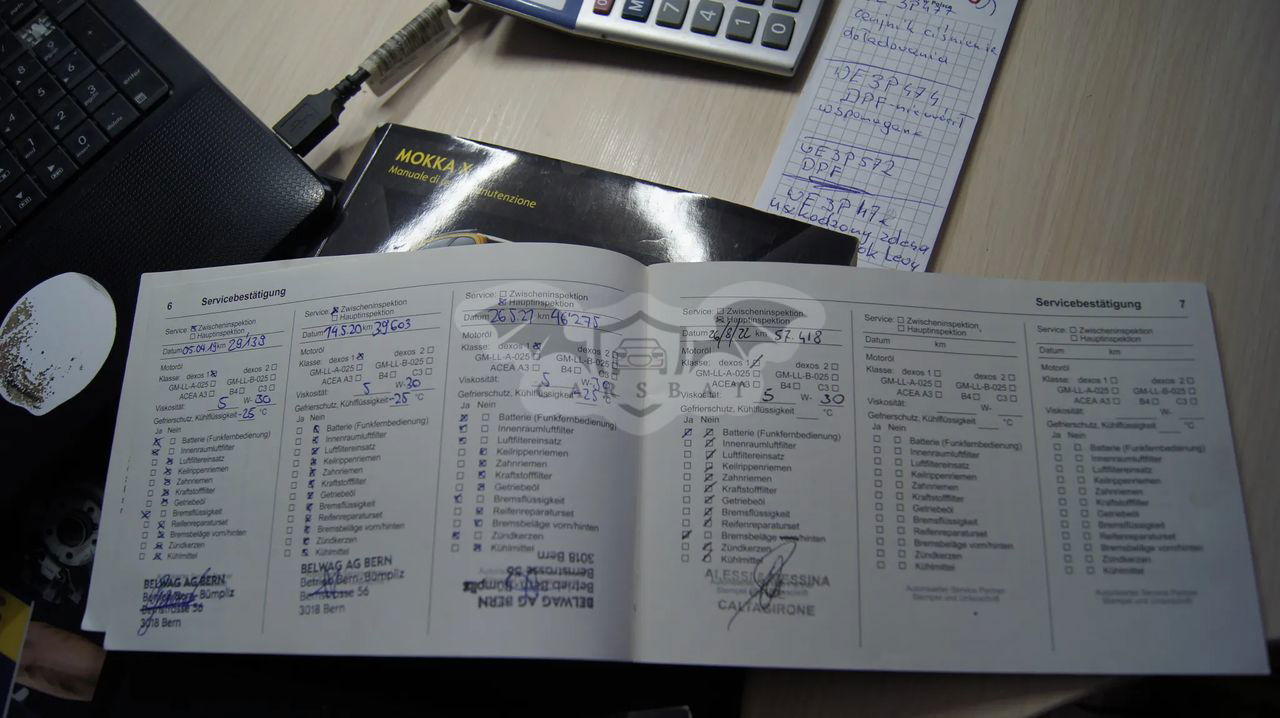 MOKKA X
Manuale di
DPF
WE3P474,
WE3P572
DPF
6 Servicebestätigung
Service: Zwischeninspektion
Hauptinspektion
Datum 05.04.19 km 29139
Motoröl
Klasse: dexos 1 dexos 2
GM-LL-A-025 GM-LL-B-025
ACEA A3 B4 C3
Viskosität: 5 W- 30
Gefrierschutz, Kühlflüssigkeit -25 °C
Ja Nein
Batterie (Funkfernbedienung)
Innenraumluftfilter
Luftfiltereinsatz
Keilrippenriemen
Zahnriemen
Kraftstofffilter
Getriebeöl
Bremsflüssigkeit
Reifenreparaturset
Bremsbeläge vorn/hinten
Zündkerzen
Kühlmittel
BELWAG AG BERN
Betrieb Bern-Bümpliz
Bernstrasse 56
3018 Bern
Service: Zwischeninspektion
Hauptinspektion
Datum 14.5.20 km 39603
Motoröl
Klasse: dexos 1 dexos 2
GM-LL-A-025 GM-LL-B-025
ACEA A3 B4 C3
Viskosität: 5 W- 30
Gefrierschutz, Kühlflüssigkeit -25 °C
Ja Nein
Batterie (Funkfernbedienung)
Innenraumluftfilter
Luftfiltereinsatz
Keilrippenriemen
Zahnriemen
Kraftstofffilter
Getriebeöl
Bremsflüssigkeit
Reifenreparaturset
Bremsbeläge vorn/hinten
Zündkerzen
Kühlmittel
BELWAG AG BERN
Betrieb Bern-Bümpliz
Bernstrasse 56
3018 Bern
Service: Zwischeninspektion
Hauptinspektion
Datum 26.5.21 km 46'275
Motoröl
Klasse: dexos 1 dexos 2
GM-LL-A-025 GM-LL-B-025
ACEA A3 B4 C3
Viskosität: 5 W-
Gefrierschutz, Kühlflüssigkeit -25
Ja Nein
Batterie (Funkfernbedienung)
Innenraumluftfilter
Luftfiltereinsatz
Keilrippenriemen
Zahnriemen
Kraftstofffilter
Getriebeöl
Bremsflüssigkeit
Reifenreparaturset
Bremsbeläge vorn/hinten
Zündkerzen
Kühlmittel
BELWAG AG BERN
Betrieb Bern-Bümpliz
Bernstrasse 56
3018 Bern
Servicebestätigung 7
Service: Zwischeninspektion
Hauptinspektion
Datum 26/8/22 km 57.418
Motoröl
Klasse: dexos 1 dexos 2
GM-LL-A-025 GM-LL-B-025
ACEA A3 B4 C3
Viskosität: 5 W- 30
Gefrierschutz, Kühlflüssigkeit °C
Ja Nein
Batterie (Funkfernbedienung)
Innenraumluftfilter
Luftfiltereinsatz
Keilrippenriemen
Zahnriemen
Kraftstofffilter
Getriebeöl
Bremsflüssigkeit
Reifenreparaturset
Bremsbeläge vorn/hinten
Zündkerzen
Kühlmittel
CALTAGIRONE
Service: Zwischeninspektion
Hauptinspektion
Datum km
Motoröl
Klasse: dexos 1 dexos 2
GM-LL-A-025 GM-LL-B-025
ACEA A3 B4 C3
Viskosität: W-
Gefrierschutz, Kühlflüssigkeit °C
Ja Nein
Batterie (Funkfernbedienung)
Innenraumluftfilter
Luftfiltereinsatz
Keilrippenriemen
Zahnriemen
Kraftstofffilter
Getriebeöl
Bremsflüssigkeit
Reifenreparaturset
Bremsbeläge vorn/hinten
Zündkerzen
Kühlmittel
Autorisierter Service Partner
Stempel und Unterschrift
Service: Zwischeninspektion
Hauptinspektion
Datum km
Motoröl
Klasse: dexos 1 dexos 2
GM-LL-A-025 GM-LL-B-025
ACEA A3 B4 C3
Viskosität: W-
Gefrierschutz, Kühlflüssigkeit °C
Ja Nein
Batterie (Funkfernbedienung)
Innenraumluftfilter
Luftfiltereinsatz
Keilrippenriemen
Zahnriemen
Kraftstofffilter
Getriebeöl
Bremsflüssigkeit
Reifenreparaturset
Bremsbeläge vorn/hinten
Zündkerzen
Kühlmittel
Autorisierter Service Partner
Stempel und Unterschrift